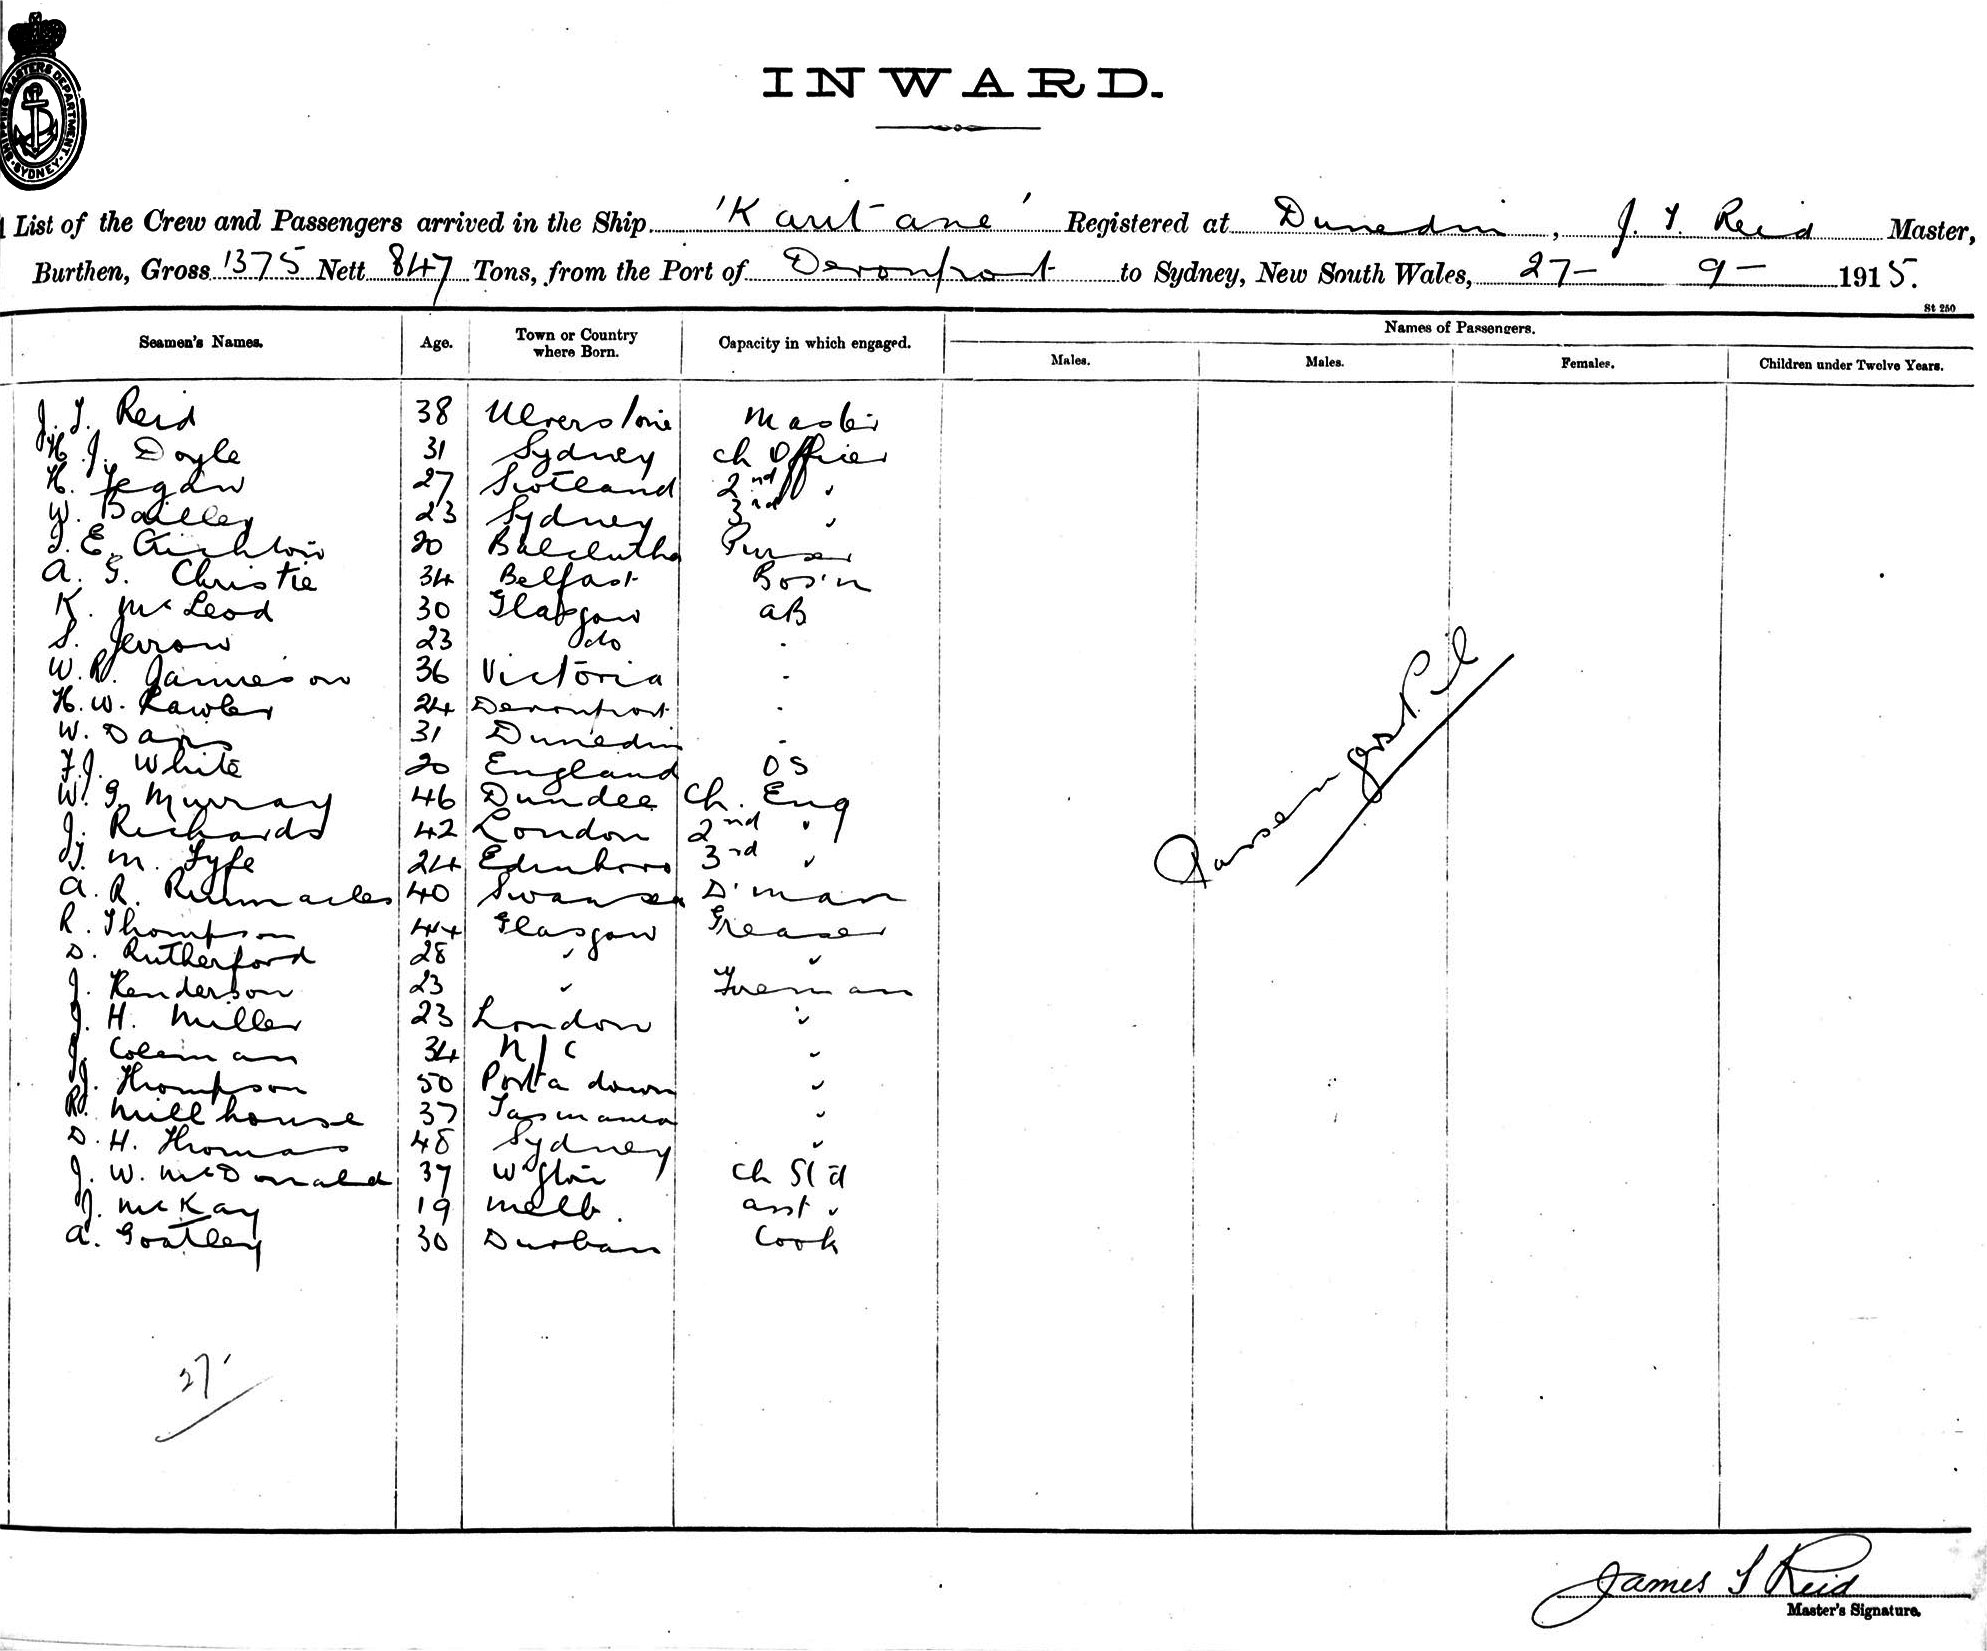 SHIPPING MASTERS DEPARTMENT · SYDNEY ·
INWARD.
List of the Crew and Passengers arrived in the Ship 'Kaitane' Registered at Dunedin, J. T. Reid Master,
Burthen, Gross 1375 Nett 847 Tons, from the Port of Devonport to Sydney, New South Wales, 27- 9- 1915.
St 250
Seamen's Names. Age. Town or Country where Born. Capacity in which engaged. Names of Passengers.
Males. Males. Females. Children under Twelve Years.
J. T. Reid 38 Ulverstone Master
H. J. Doyle 31 Sydney Ch Officer
H. 27 Scotland 2nd "
W. Bailley 23 Sydney 3rd "
E. 20 Balclutha Purser
A. G. Christie 34 Belfast Bos'n
K. McLeod 30 Glasgow AB
S. Jerrow 23 do "
W. R. Jamieson 36 Victoria "
H. W. Lawler 24 Devonport "
W. Davis 31 Dunedin "
F. J. White 20 England OS
W. G. Murray 46 Dundee Ch. Eng
J. Richards 42 London 2nd "
J. M. Fyfe 24 Edinboro 3rd "
A. R. 40 Swansea D'man
R. Thompson 44 Glasgow Greaser
D. Rutherford 28 " "
J. Henderson 23 " Fireman
J. H. Miller 23 London "
J. Coleman 34 N/C "
J. Thompson 50 Porta down "
R. Millhouse 37 Tasmania "
D. H. Thomas 48 Sydney "
J. W. McDonald 37 W'gton Ch Std
J. McKay 19 Melb. asst "
A. Goatley 30 Durban Cook
Passengers Nil
27
James T Reid
Master's Signature.